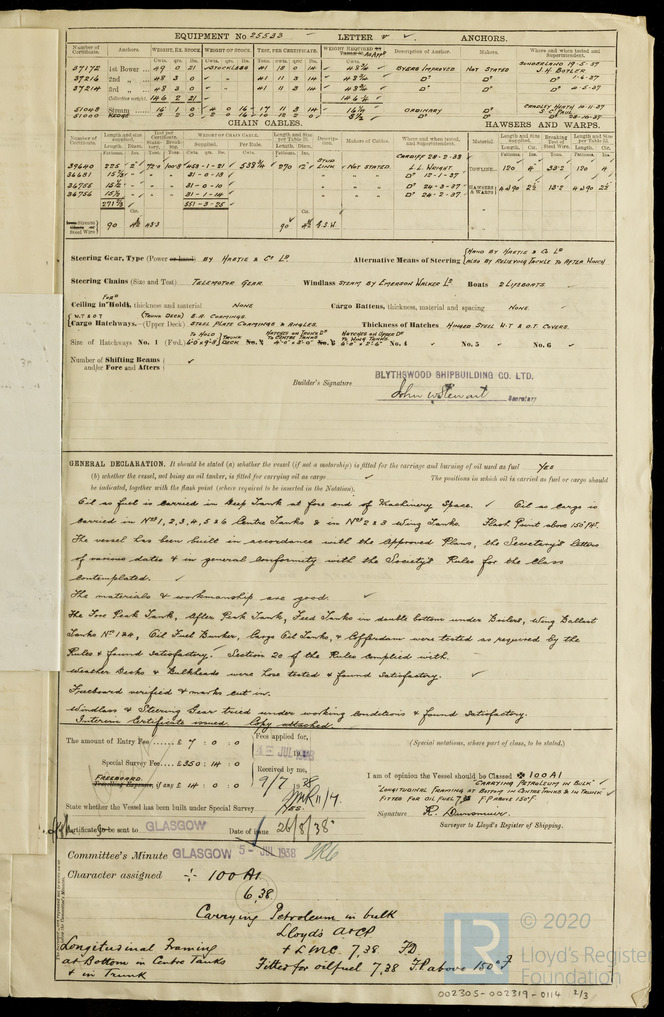 EQUIPMENT No 25533 — LETTER ANCHORS.
Number of Certificate. Anchors WEIGHT, EX. STOCK WEIGHT OF STOCK. TEST, PER CERTIFICATE. WEIGHT REQUIRED Description of Anchor. Makers. Where and when tested and Superintendent.
37172 1st Bower 49 0 21 STOCKLESS 41 18 0 14 48 3/4 BYERS IMPROVED NOT STATED SUNDERLAND 19-5-37 J.H. BUTLER
37216 2nd 48 3 0 41 11 3 14 48 3/4 Do Do Do 1-6-37
37214 3rd 48 3 0 41 11 3 14 48 3/4 Do Do Do
Collective weight 146 2 21 146 1/4
51048 Stream 16 1 0 4 0 16 17 11 3 14 16 1/4 ORDINARY Do CRADLEY HEATH 10-11-37 S.C. PAUL
51000 KEDGE Do Do Do 28-10-37
CHAIN CABLES. HAWSERS AND WARPS.
Number of Certificate. Length and size supplied. Test per Certificate. WEIGHT OF CHAIN CABLE. Length and size per Table 23. Description. Makers of Cables. Where and when tested, and Superintendent. Material. Length and size supplied. Breaking Test of Steel Wire. Length and Size per Table 23.
39640 225 2" 72.0 100.8 453-1-21 538 3/4 270 2" STUD LINK NOT STATED. CARDIFF 28-2-38 L.L. WRIGHT. TOWLINE 120 4 33.2 120 4
36681 15 1/2 31-0-13 Do 12-1-37
36755 15 1/2 31-0-10 Do 24-3-37 HAWSERS & WARPS 4 @ 90 2 1/2 13.2 4 @ 90 2 1/2
36756 15 1/2 31-1-14 Do 24-2-37
271 1/2 551-3-25
Steel Wire 90 4 1/2 43.3 90 4 1/2 F.S.W.
Steering Gear, Type (Power or hand) BY HASTIE & Co Ld Alternative Means of Steering HAND BY HASTIE & Co Ld ALSO BY RELIEVING TACKLE TO AFTER WINCH
Steering Chains (Size and Test) TELEMOTOR GEAR. Windlass STEAM BY EMERSON WALKER Ld Boats 2 LIFEBOATS
Ceiling in Holds, thickness and material NONE Cargo Battens, thickness, material and spacing NONE.
W.T & O.T (TRUNK DECK) E.A. COAMINGS.
Cargo Hatchways.—(Upper Deck) STEEL PLATE COAMINGS & ANGLES. Thickness of Hatches HINGED STEEL W.T & O.T. COVERS.
TO HOLD HATCHES ON TRUNK Dk TO CENTRE TANKS HATCHES ON UPPER Dk TO WING TANKS
Size of Hatchways No. 1 (Fwd.) TRUNK DECK 4'-0" x 3'-0" 6'-0" x 2'-6" No. 4 No. 5 No. 6
Number of Shifting Beams
and/or Fore and Afters
Builder's Signature BLYTHSWOOD SHIPBUILDING CO. LTD.
John W Stewart Secretary
GENERAL DECLARATION. It should be stated (a) whether the vessel (if not a motorship) is fitted for the carriage and burning of oil used as fuel YES
(b) whether the vessel, not being an oil tanker, is fitted for carrying oil as cargo The positions in which oil is carried as fuel or cargo should
be indicated, together with the flash point (where required to be inserted in the Notation).
Oil as fuel is carried in Deep Tank at fore end of Machinery Space. Oil as cargo is
carried in Nos 1, 2, 3, 4, 5 & 6 Centre Tanks & in Nos 2 & 3 Wing Tanks. Flash Point above 150°F.
The vessel has been built in accordance with the Approved Plans, the Secretary's letters
of various dates & in general conformity with the Society's Rules for the Class
contemplated.
The materials & workmanship are good.
The Fore Peak Tank, After Peak Tank, Feed Tanks in double bottom under Boilers, Wing Ballast
Tanks No 1 & 4, Oil Fuel Bunker, Cargo Oil Tanks, & Cofferdam were tested as required by the
Rules & found satisfactory. Section 20 of the Rules complied with.
Weather Decks & Bulkheads were hose tested & found satisfactory.
Freeboard verified & marks cut in.
Windlass & Steering Gear tried under working conditions & found satisfactory.
Interim Certificate issued. Copy attached.
The amount of Entry Fee £ 7 : 0 : 0 Fees applied for, JUL 1938 (Special notations, where part of class, to be stated.)
Special Survey Fee £350 : 14 : 0 Received by me,
FREEBOARD
Travelling Expenses, if any £ 14 : 0 : 0 9/7 38
I am of opinion the Vessel should be Classed ✠ 100 A1
"CARRYING PETROLEUM IN BULK"
"LONGITUDINAL FRAMING AT BOTTOM IN CENTRE TANKS & IN TRUNK"
FITTED FOR OIL FUEL 7,38 F.P ABOVE 150°F.
State whether the Vessel has been built under Special Survey YES.
Signature
Surveyor to Lloyd's Register of Shipping.
Certificate to be sent to GLASGOW Date of issue 26/8/38
Committee's Minute GLASGOW 5 - JUL 1938
Character assigned 100 A1
6,38.
Carrying Petroleum in bulk
Lloyd's A&CP
Longitudinal Framing + LMC. 7,38 FD.
at Bottom in Centre Tanks Fitted for oil fuel 7,38 F.P above 150°F
& in Trunk
LR © 2020
Lloyd's Register
Foundation
002305-002319-0114 2/3